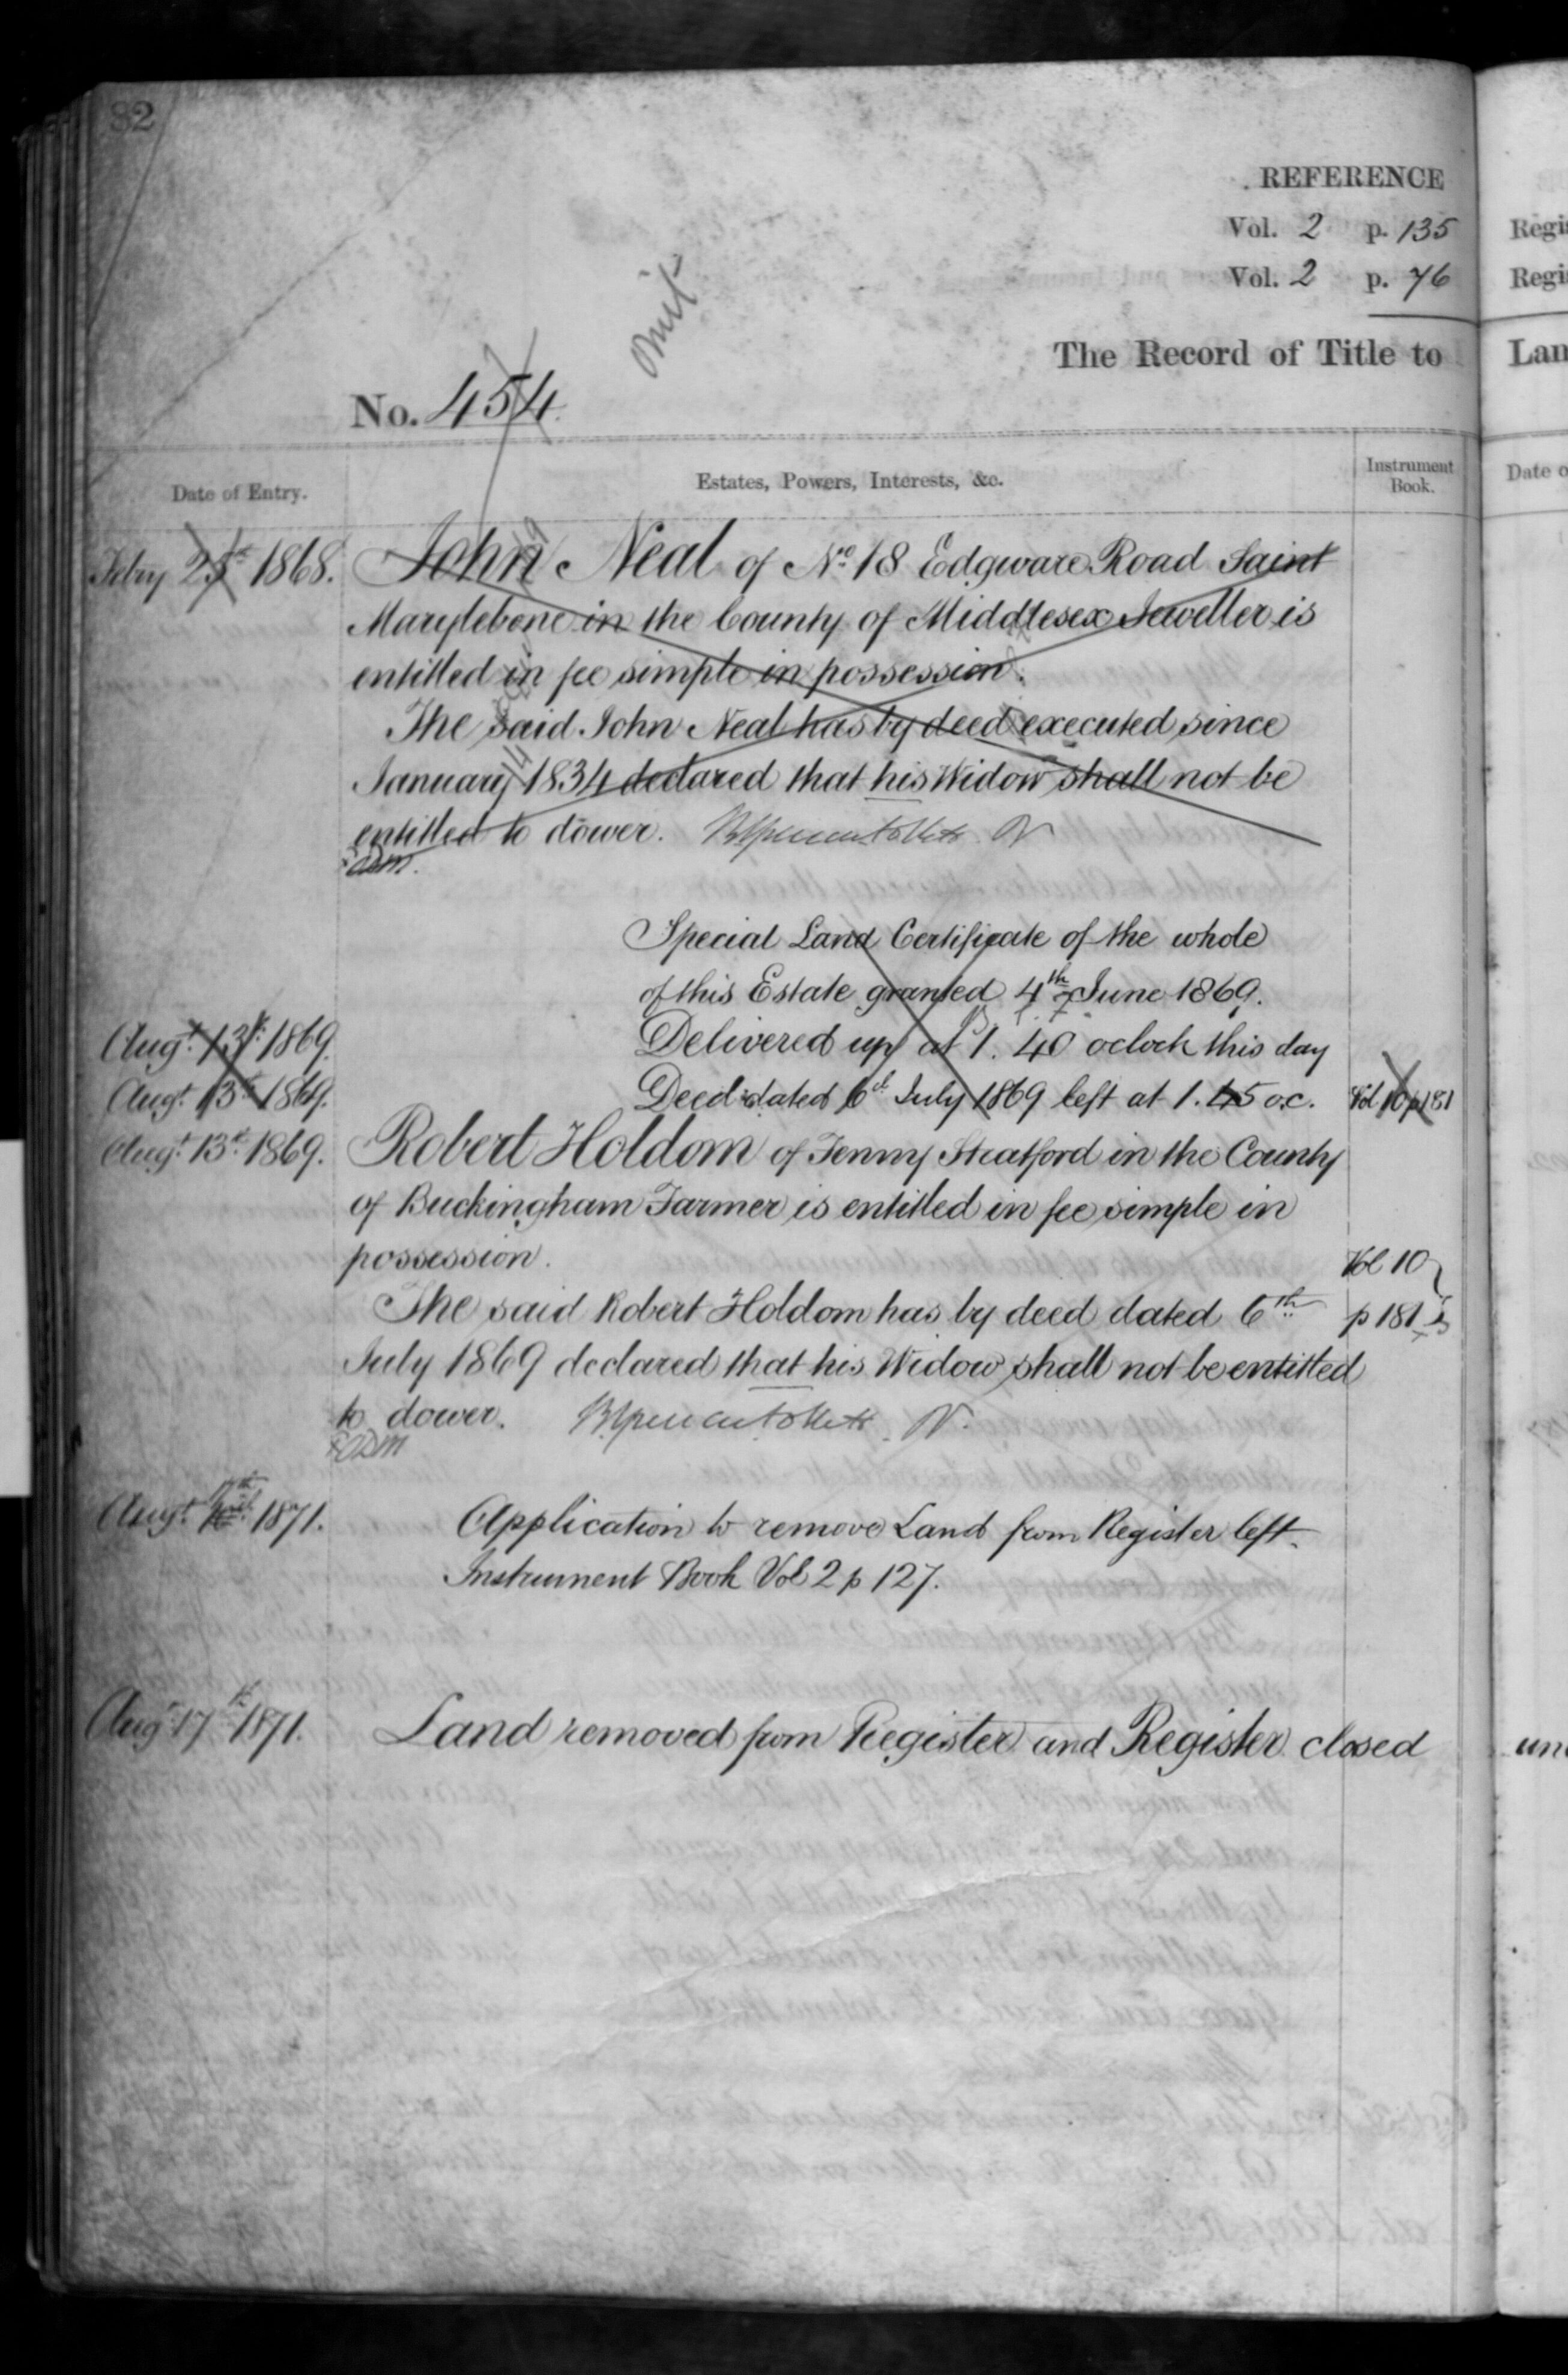 82
REFERENCE
Vol. 2 p. 135
Vol. 2 p. 76
The Record of Title to
omit
No. 454
Date of Entry.
Estates, Powers, Interests, &c.
Instrument
Book.
Febry 1868. John Neal of No. 18 Edgware Road Saint
Marylebone in the County of Middlesex Jeweller is
entitled in fee simple in possession.
The said John Neal has by deed executed since
January 1834 declared that his Widow shall not be
entitled to dower.
Special Land Certificate of the whole
of this Estate granted 4th June 1869.
Augt. 13th 1869. Delivered up at 1.40 oclock this day
Augt. 13th 1869. Deed dated 6th July 1869 left at 1.45 o.c. Vol 10 p 181
Augt. 13th 1869. Robert Holdom of Fenny Stratford in the County
of Buckingham Farmer is entitled in fee simple in
possession.
Vol 10
The said Robert Holdom has by deed dated 6th p 181
July 1869 declared that his Widow shall not be entitled
to dower.
Augt. 17th 1871. Application to remove Land from Register left.
Instrument Book Vol 2 p 127.
Augt 17th 1871. Land removed from Register and Register closed
Regis
Regis
Lan
Date o